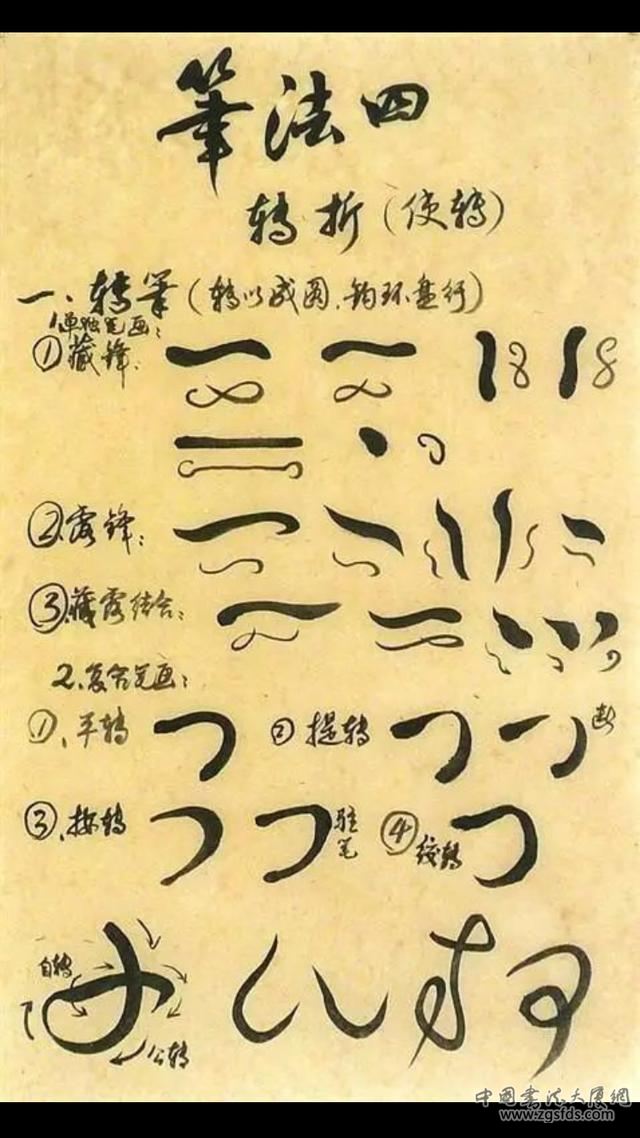 筆法四
转折（使转）
一、转笔（转以成圆、钩环盘行）
1.单独笔画：
①藏锋：
②露锋：
③藏露结合：
2.复合笔画：
①、平转 ②提转 断
③、按转 驻笔 ④绞转
自转
公转
中国书法大厦網
www.zgsfds.com